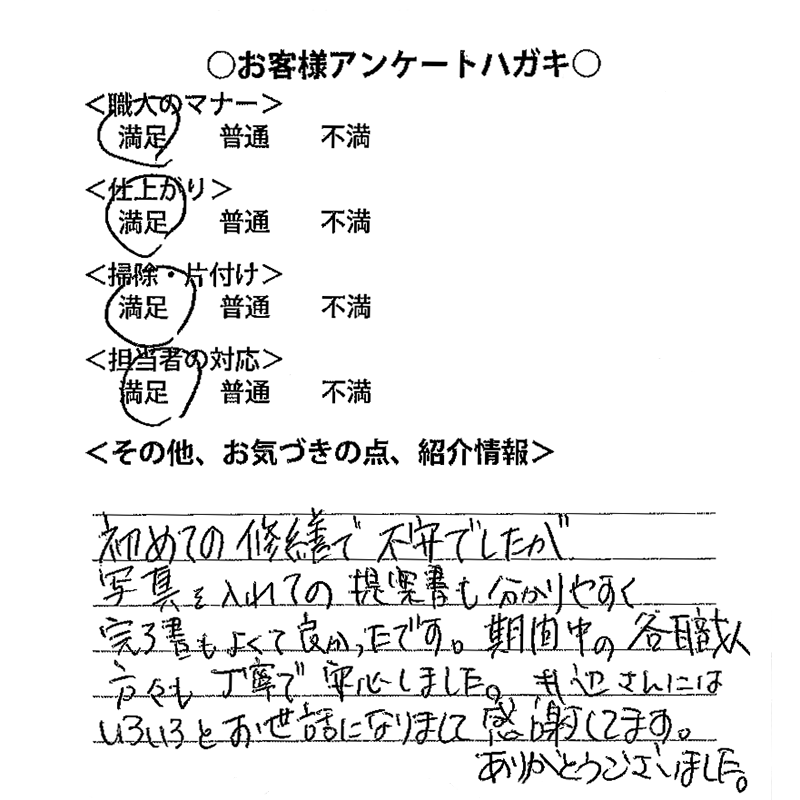 ○お客様アンケートハガキ○
＜職人のマナー＞
満足 普通 不満
＜仕上がり＞
満足 普通 不満
＜掃除・片付け＞
満足 普通 不満
＜担当者の対応＞
満足 普通 不満
＜その他、お気づきの点、紹介情報＞
初めての修繕で不安でしたが
写真を入れての提案書も分かりやすく
完了書もよくて良かったです。期間中の各職人
方々も丁寧で安心しました。さんには
いろいろとお世話になりまして感謝してます。
ありがとうございました。